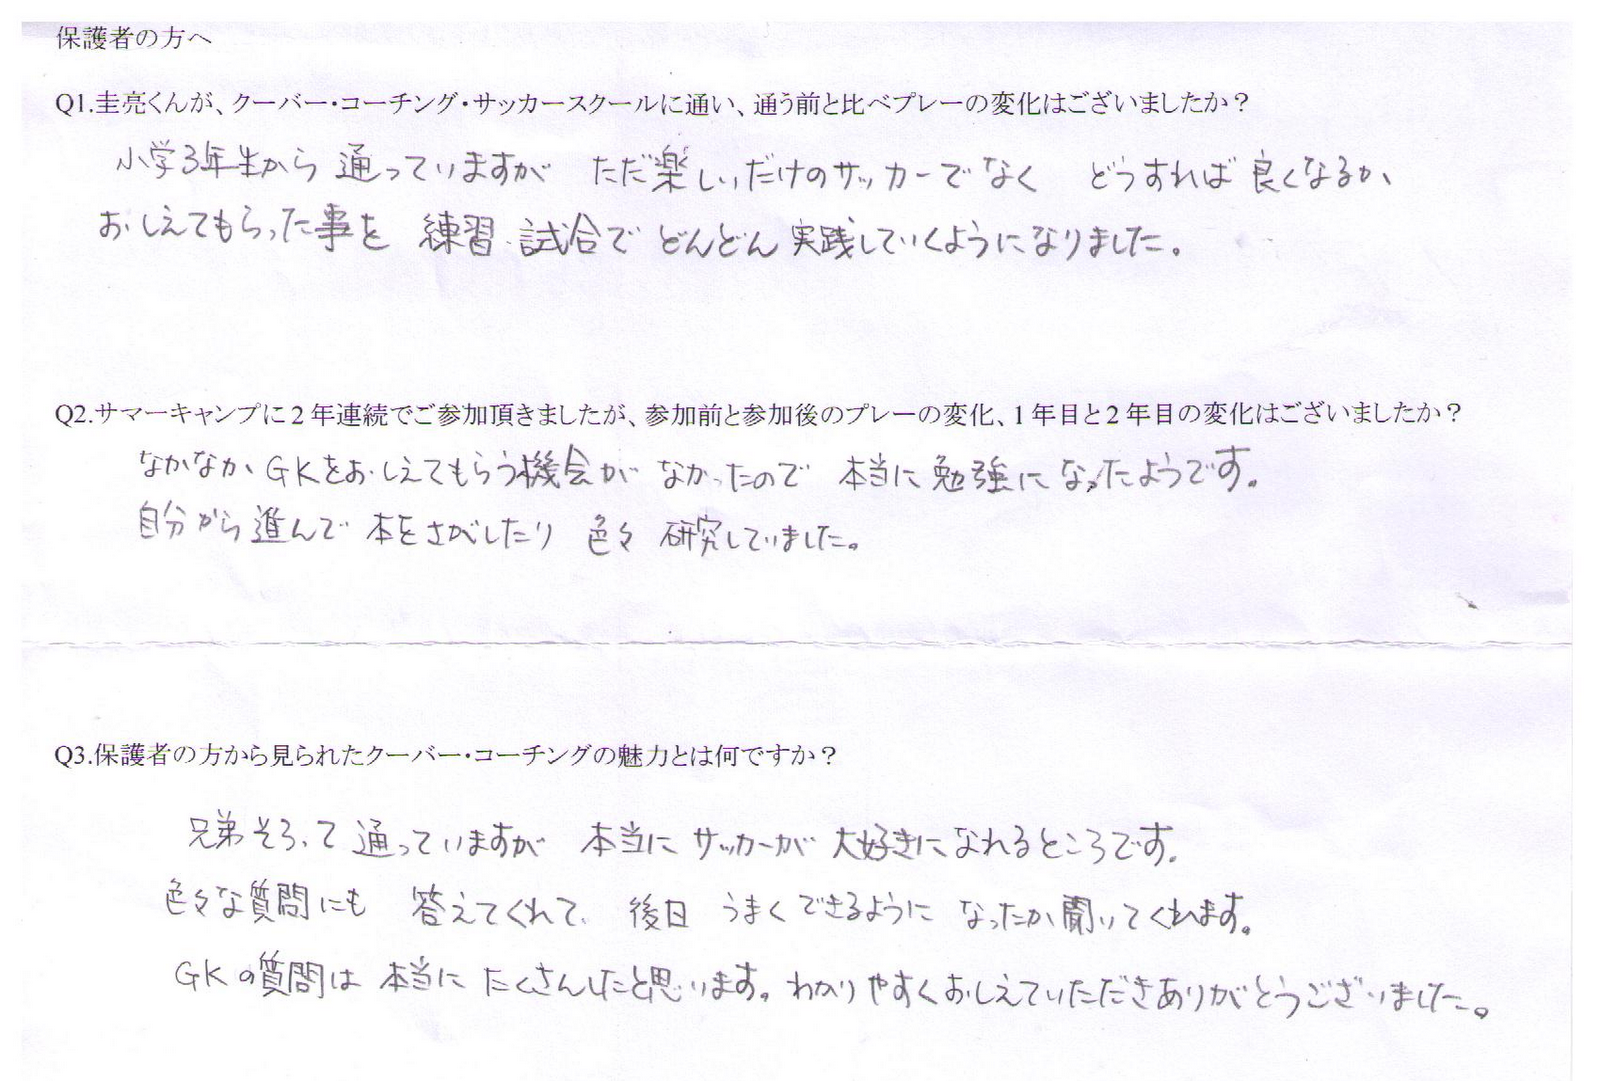 保護者の方へ
Q1.圭亮くんが、クーバー・コーチング・サッカースクールに通い、通う前と比べプレーの変化はございましたか？
小学3年生から 通っていますが ただ楽しいだけのサッカーでなく どうすれば 良くなるか、
おしえてもらった事を 練習、試合で どんどん 実践していくようになりました。
Q2.サマーキャンプに2年連続でご参加頂きましたが、参加前と参加後のプレーの変化、1年目と2年目の変化はございましたか？
なかなか GKをおしえてもらう機会が なかったので 本当に 勉強に なったようです。
自分から 進んで 本をさがしたり 色々 研究していました。
Q3.保護者の方から見られたクーバー・コーチングの魅力とは何ですか？
兄弟そろって 通っていますが 本当に サッカーが 大好きになれるところです。
色々な質問にも 答えてくれて、 後日 うまくできるように なったか 聞いてくれます。
GKの質問は 本当に たくさんしたと思います。わかりやすくおしえていただきありがとうございました。